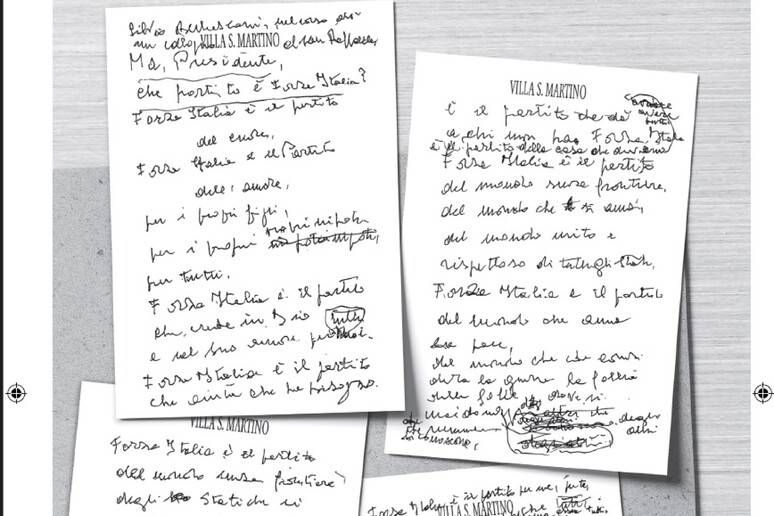 Silvio Berlusconi, nel corso di
un colloquio al San Raffaele,
VILLA S. MARTINO
Ma, Presidente,
che partito è Forza Italia?
Forza Italia è il partito
del cuore,
Forza Italia è il Partito
dell'amore,
per i propri figli,
per i propri nipoti,
per tutti.
Forza Italia è il partito
che crede in Dio
e nel suo amore per
Forza Italia è il partito
che aiuta chi ha bisogno.
VILLA S. MARTINO
È il partito che dà
a chi non ha, Forza Italia
è il partito della casa che
Forza Italia è il partito
del mondo senza frontiere,
del mondo che si ama,
del mondo unito e
rispettoso di tutti gli Stati,
Forza Italia è il partito
del mondo che ama
la pace,
del mondo che considera
la guerra la follia
delle follie, dove si
degli
altri
si conoscono,
VILLA S. MARTINO
Forza Italia è il partito
del mondo senza frontiere
degli Stati che si
Forza Italia è il partito per
VILLA S. MARTINO